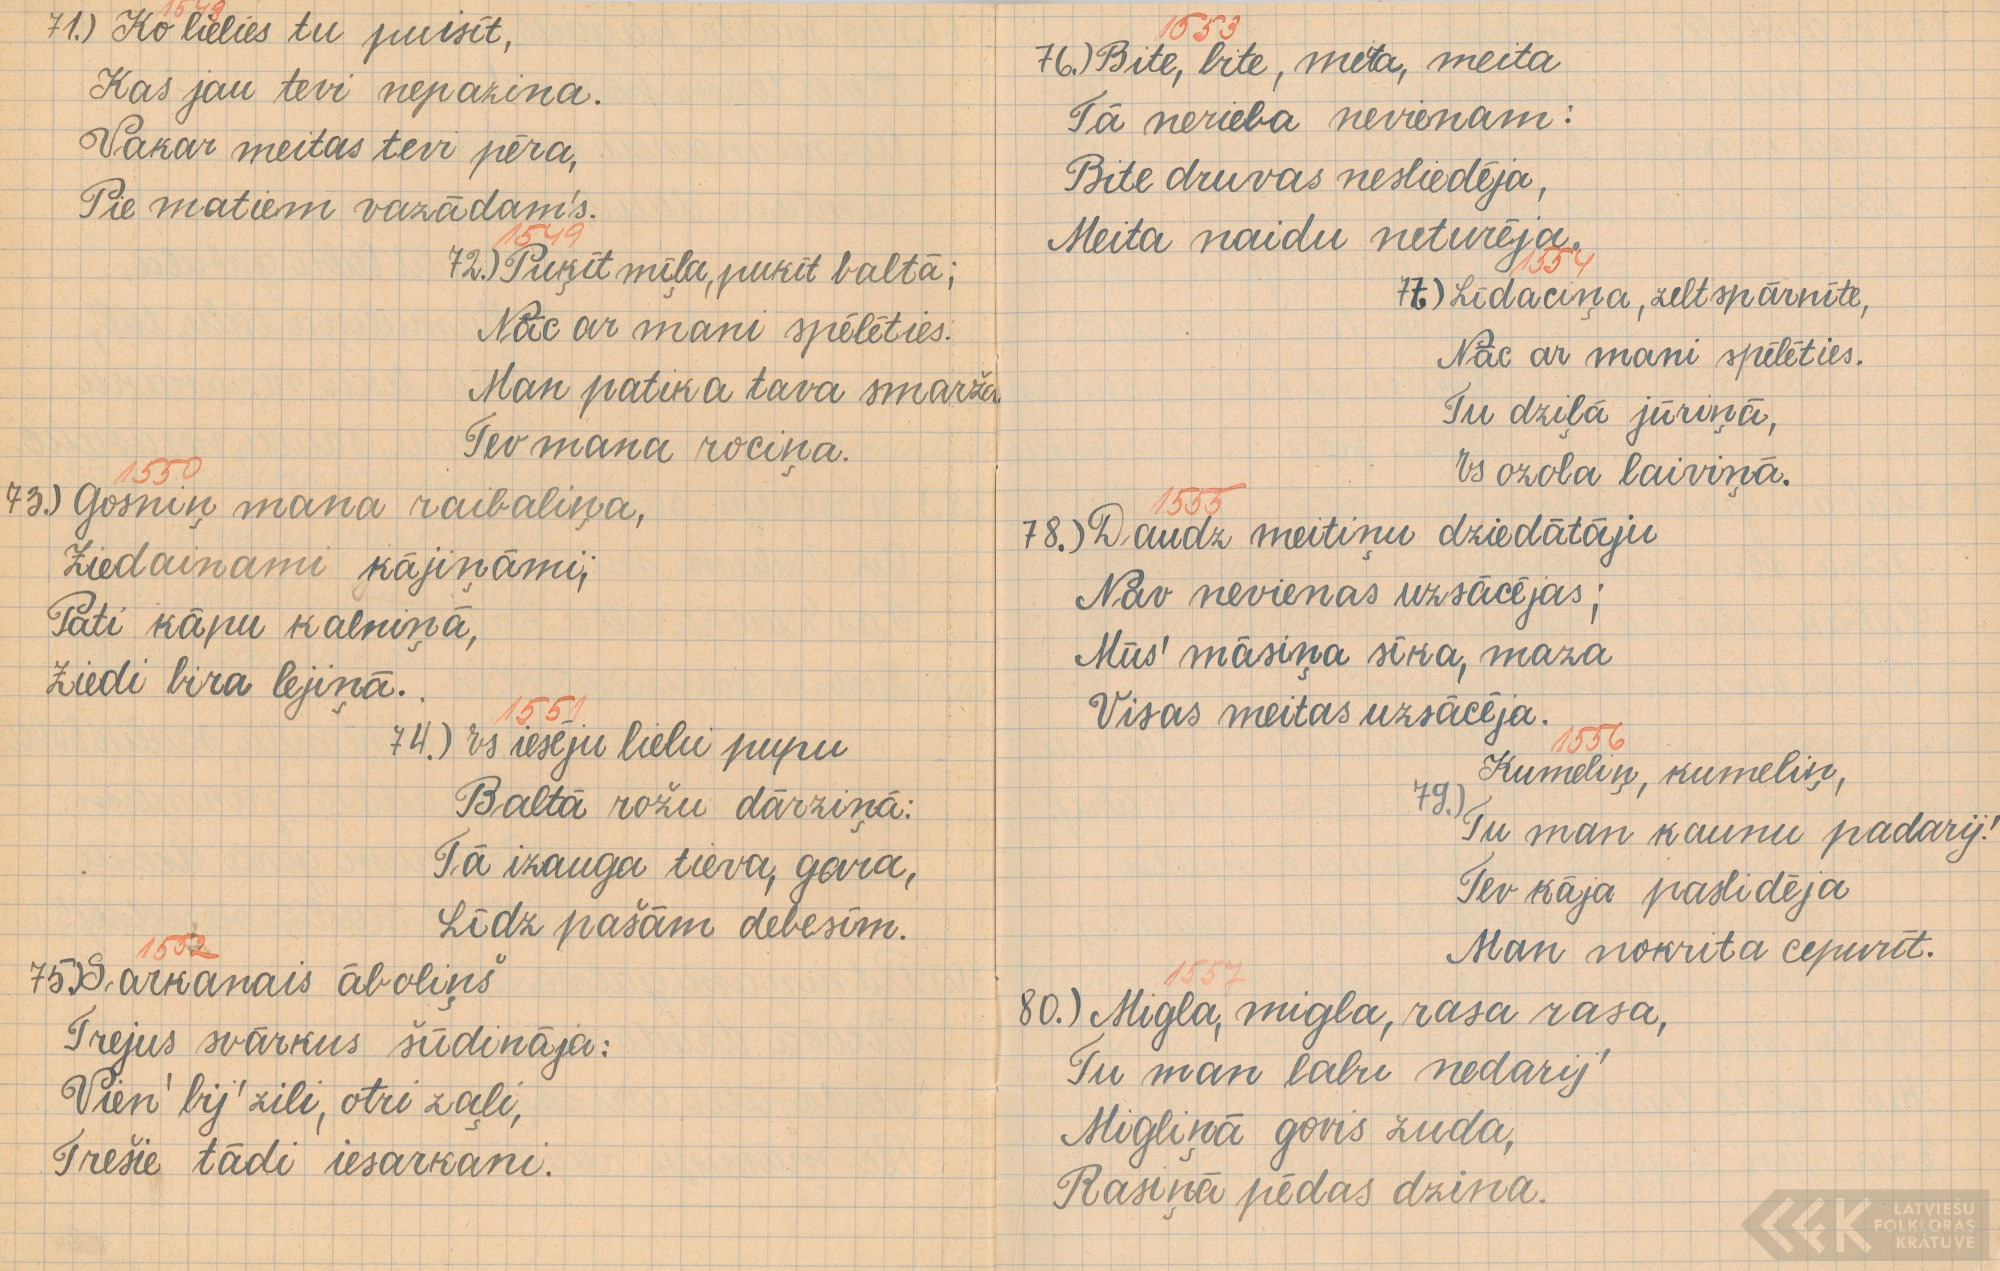 1549
71.) Ko lielies tu puisīt,
Kas jau tevi nepazina.
Vakar meitas tevi pēra,
Pie matiem vazādam's.
1549
72.) Puķīt mīļa, puķīt baltā;
Nāc ar mani spēlēties.
Man patika tava smarža
Tev mana rociņa.
1550
73.) Gosniņ mana raibaliņa,
Ziedainami kājiņāmi;
Pati kāpu kalniņā,
Ziedi bira lejiņā.
1551
74.) Es iesēju lielu pupu
Baltā rožu dārziņā:
Tā izauga tieva, gara,
Līdz pašām debesīm.
1552
75.) Sarkanais āboliņš
Trejus svārkus šūdināja:
Vien' bij' zili, otri zaļi,
Trešie tādi iesarkani.
1553
76.) Bite, bite, meita, meita
Tā nerieba nevienam:
Bite druvas nesliedēja,
Meita naidu neturēja.
1554
77.) Līdaciņa, zeltspārnīte,
Nāc ar mani spēlēties.
Tu dziļā jūriņā,
Es ozola laiviņā.
1555
78.) Daudz meitiņu dziedātāju
Nav nevienas uzsācējas;
Mūs' māsiņa sīka, maza
Visas meitas uzsācēja.
1556
79.) Kumeliņ, kumeliņ,
Tu man kaunu padarij!
Tev kāja paslidēja
Man nokrita cepurīt.
1557
80.) Migla, migla, rasa rasa,
Tu man labu nedarij'
Migliņā govis zuda,
Rasiņā pēdas dzina.
LATVIEŠU
FOLKLORAS
KRĀTUVE